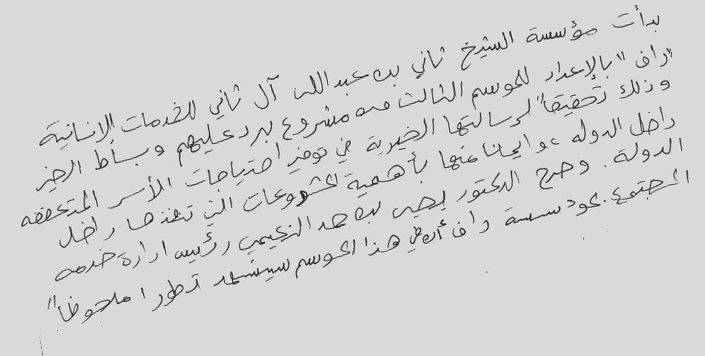 بدأت مؤسسة الشيخ ثاني بن عبدالله آل ثاني للخدمات الانسانية
"راف" بالإعداد للموسم الثالث من مشروع برد عليهم وبساط الخير
وذلك تحقيقاً لرسالتها الخيرية في توفير احتياجات الأسر المتعففه
داخل الدوله، وايماناً منها بأهمية المشروعات التي تنفذها داخل
الدولة. وصرح الدكتور يحيى بن حمد النعيمي رئيس ادارة خدمه
المجتمع بمؤسسة راف أن هذا الموسم سيشهد تطورا ملحوظاً"